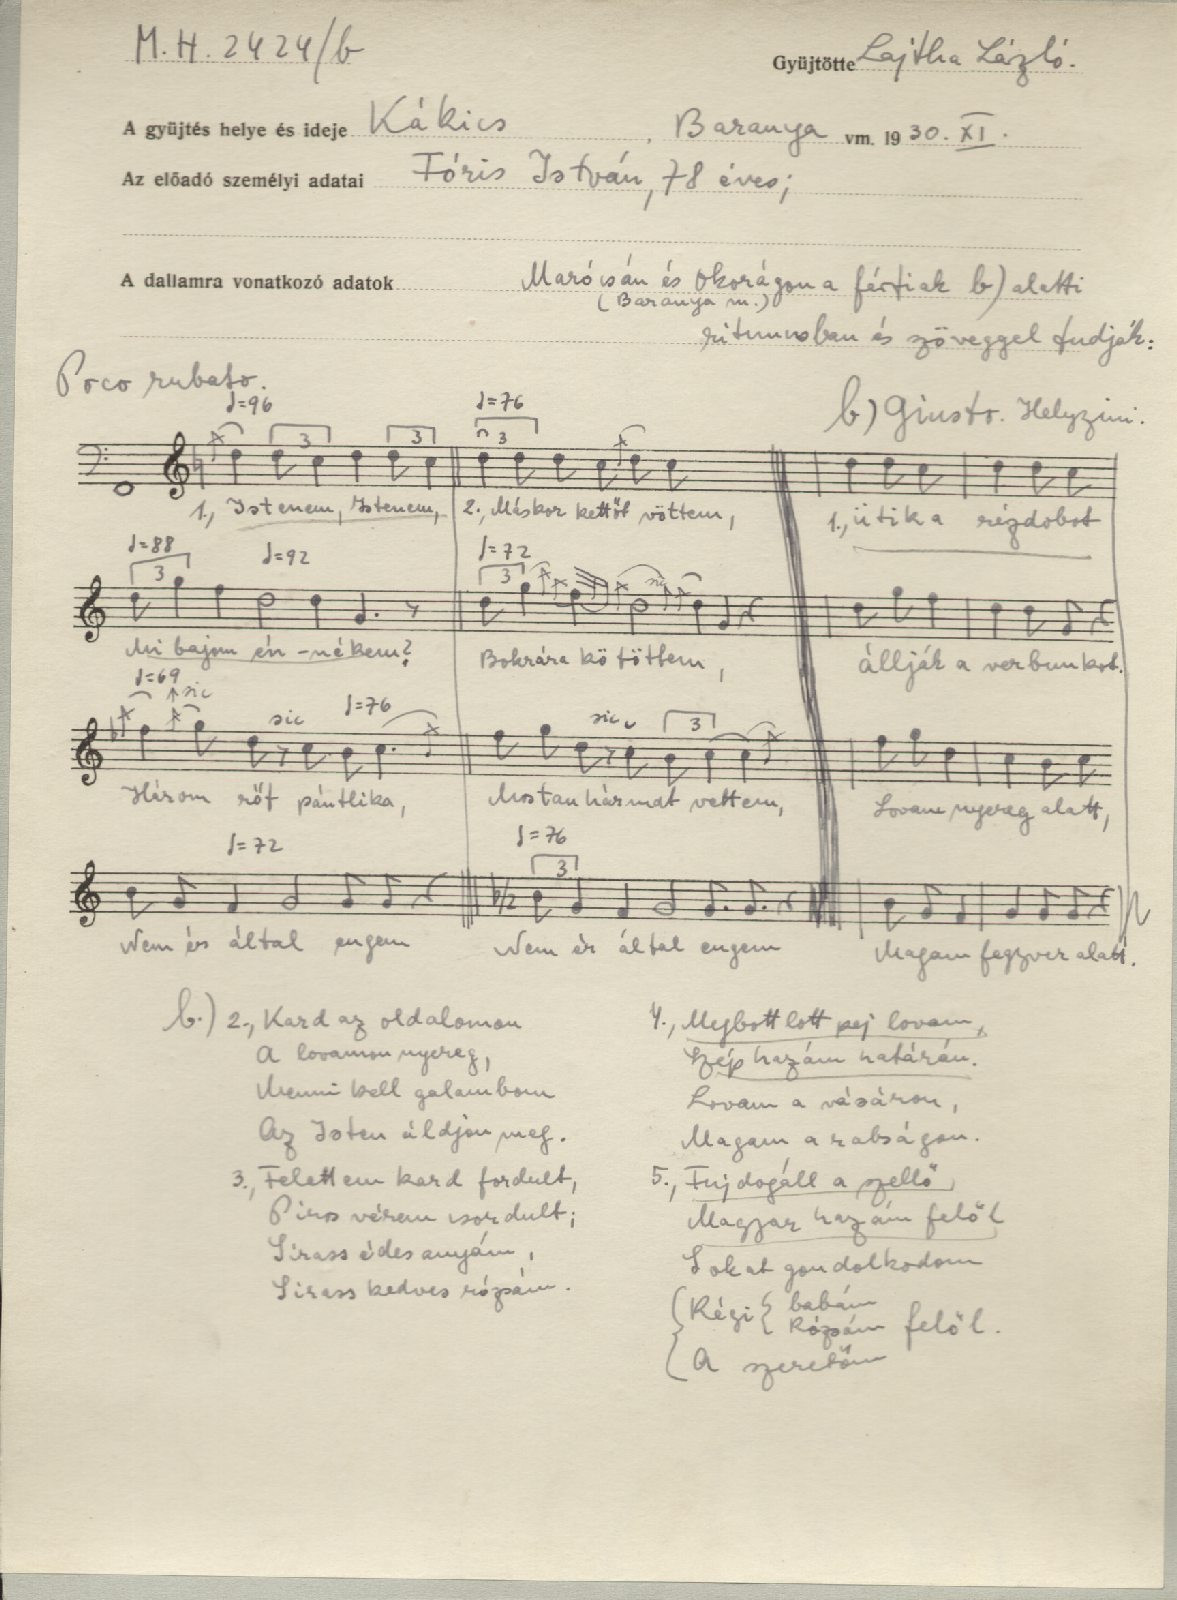 M. H. 2424/b
Gyüjtötte Lajtha László.
A gyüjtés helye és ideje Kákics, Baranya vm. 1930. XI.
Az előadó személyi adatai Fóris István, 78 éves;
A dallamra vonatkozó adatok Marócsán és Okorágon a férfiak b) alatti
(Baranya m.)
ritmusban és szöveggel tudják:
Poco rubato.
b) Giusto. Helyszini.
♩=96 ♩=76
3 3 3
1., Istenem, Istenem, 2., Máskor kettőt vöttem, 1., Ütik a rézdobot
♩=88 ♩=92 ♩=72
3 3 sic
Mi bajom én-nékem? Bokrára kötöttem, állják a verbunkot.
♩=69 sic sic ♩=76 sic 3
Három rőf pántlika, Mostan hármat vettem, Lovam nyereg alatt,
♩=72 ♩=76
3
Nem érs által engem Nem ér által engem Magam fegyver alatt.
b.) 2., Kard az oldalomon
A lovamon nyereg,
Menni kell galambom
Az Isten áldjon meg.
3., Felettem kard fordult,
Piros vérem csordult;
Sirass édes anyám,
Sirass kedves rózsám.
4., Megbottlott pej lovam,
Szép hazám határán.
Lovam a vásáron,
Magam a rabságon.
5., Fujdogáll a szellő,
Magyar hazám felől
Sokat gondolkodom
Régi babám
Rózsám felől.
A szeretőm